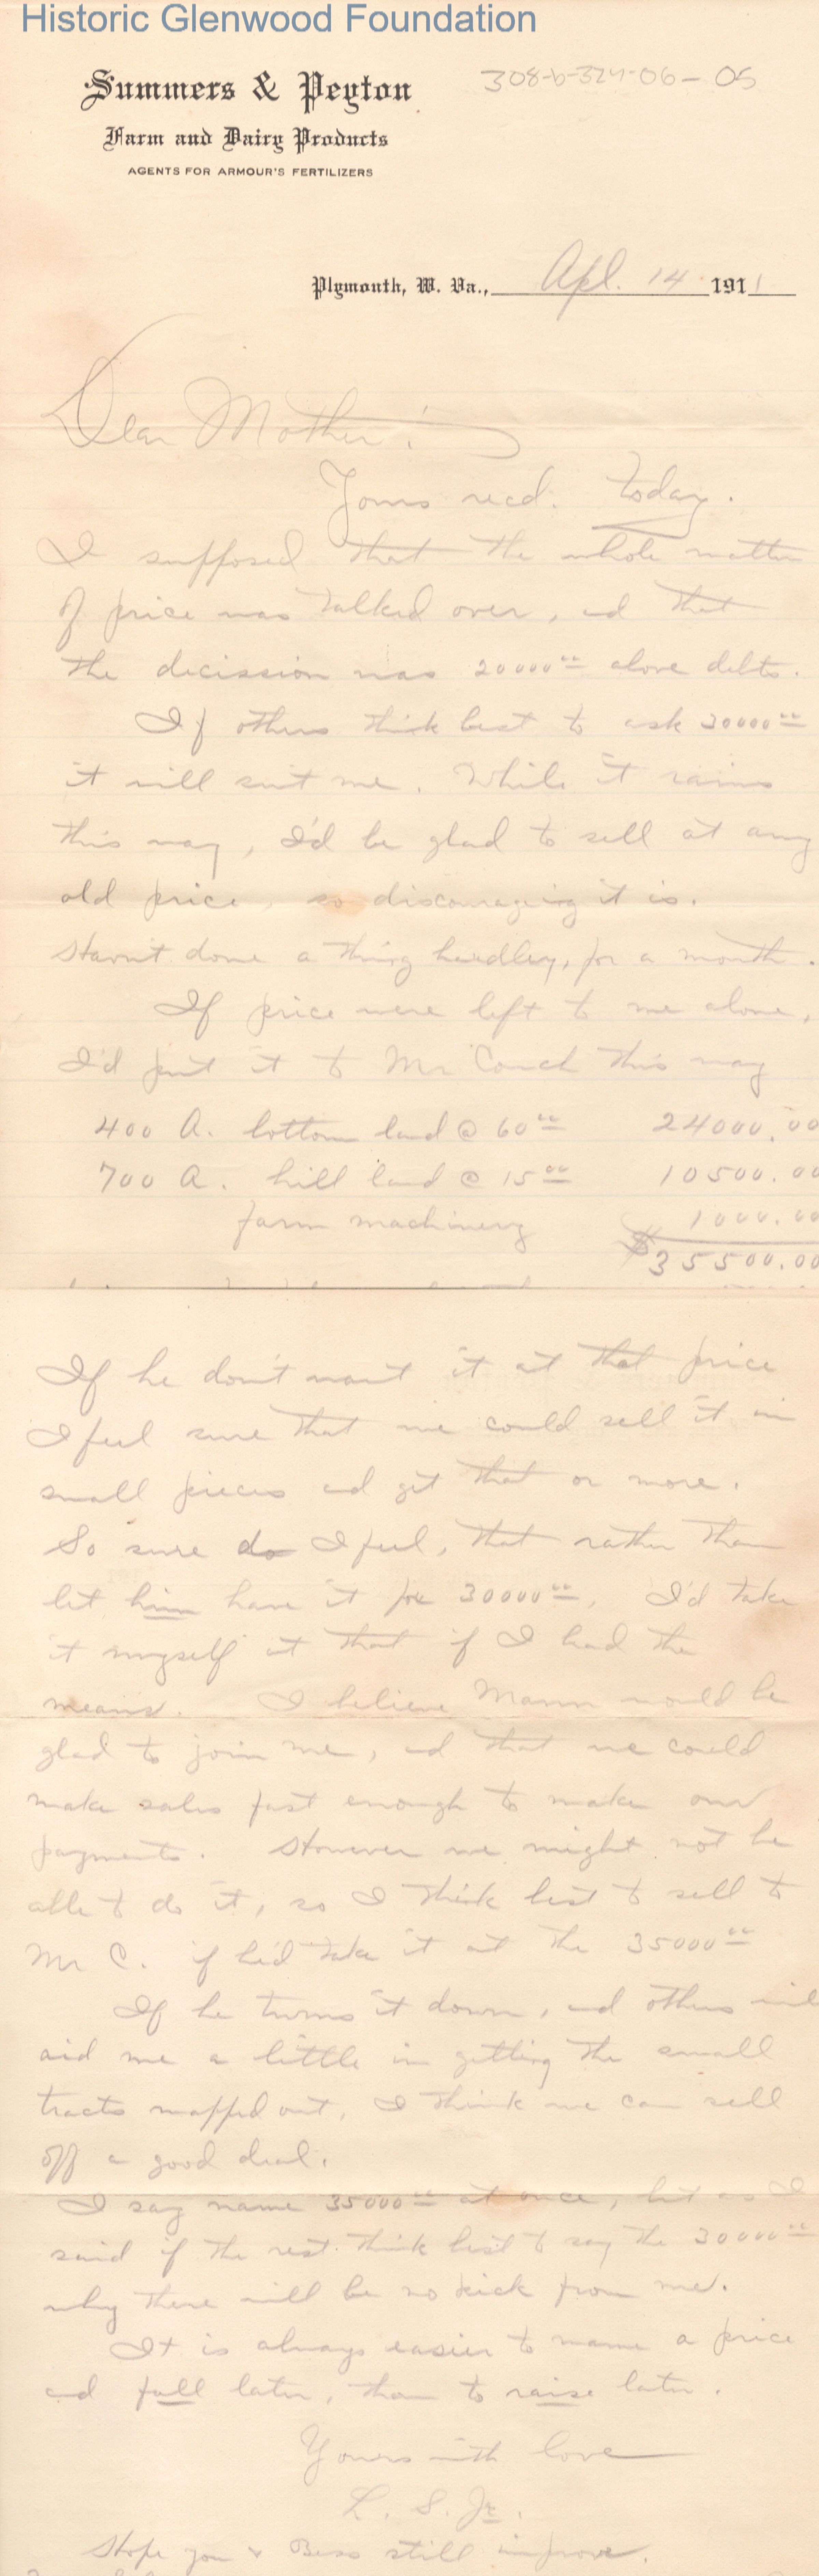 Historic Glenwood Foundation
308-b-324-06-05
Summers & Peyton
Farm and Dairy Products
AGENTS FOR ARMOUR'S FERTILIZERS
Plymouth, W. Va., Apl. 14 1911
Dear Mother:
Yours recd. today.
I supposed that the whole matter
of price was talked over, and that
the decission was 20000.00 above debts.
If others think best to ask 30000.00
it will suit me. While it rains
this way, I'd be glad to sell at any
old price, so discouraging it is.
Havn't done a thing hardley, for a month.
If price were left to me alone,
I'd put it to Mr Couch this way
400 A. bottom land @ 60.00 24000.00
700 A. hill land @ 15.00 10500.00
farm machinery 1000.00
$35500.00
If he don't want it at that price
I feel sure that we could sell it in
small pieces and get that or more.
So sure do I feel, that rather than
let him have it for 30000.00, I'd take
it myself at that if I had the
means. I believe Mann would be
glad to join me, and that we could
make sales fast enough to make our
payments. However we might not be
able to do it, so I think best to sell to
Mr C. if he'd take it at the 35000.00
If he turns it down, and others will
aid me a little in getting the small
tracts mapped out, I think we can sell
off a good deal.
I say name 35000.00 at once, but as I
said if the rest think best to say the 30000.00
why there will be no kick from me.
It is always easier to name a price
and fall later, than to raise later.
Yours with love
L. S. Jr.
Hope you & Bess still improve.